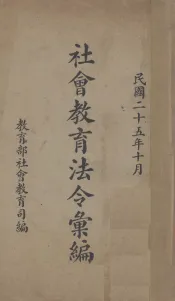 民國二十五年十月
社會教育法令彙編
教育部社會教育司編